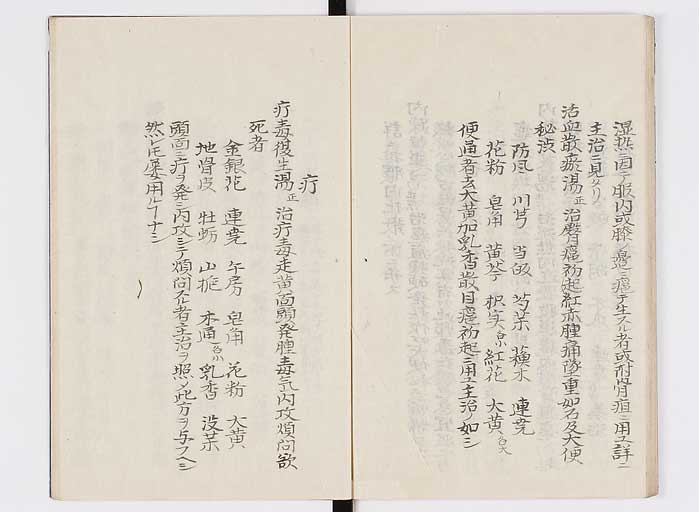 湿熱ニ因テ服内或膝ノ邉ニ癰ヲ生スル者或附骨疽ニ用ユ詳ニ
主治ニ見タリ
活血散瘀湯 正 治臀癰初起紅赤腫痛墜重如石及大便
秘渋
防風 川芎 当皈 芍薬 蘓木 連尭
花粉 皂角 黄芩 枳実 各小 紅花 大黄 各大
便通者去大黄加乳香 癰初起ニ用ユ主治ノ如シ
疔
疔毒復生湯 正 治疔毒走黄 頭面発腫毒気内攻煩悶欲
死者
金銀花 連尭 牛房 皂角 花粉 大黄
地骨皮 牡蛎 山梔 木通 各小 乳香 没薬
頭面ニ疔ヲ発シ内攻シテ煩悶スル者主治ヲ照シ此方ヲ与フヘシ
然レ𪜈屡用ルヿナシ